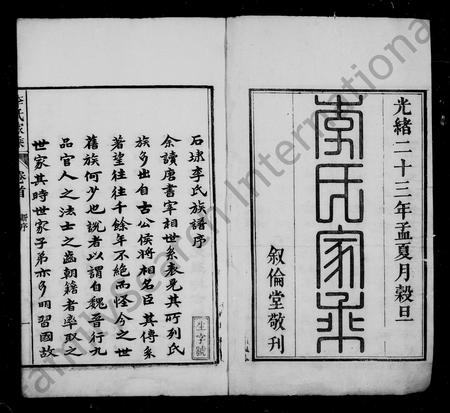 光緒二十三年孟夏月穀旦
李氏家乘
叙倫堂敬刊
石埭李氏族譜序
余讀唐書宰相世系表見其所列氏
族多出自古公侯將相名臣其傳系
著望往往千餘年不絕而怪今之世
舊族何少也說者以謂自魏晉行九
品官人之法士之齒朝籍者率取之
世家其時世家子弟亦多明習國故
生字號
李氏家乘 卷首 新序
FamilySearch International